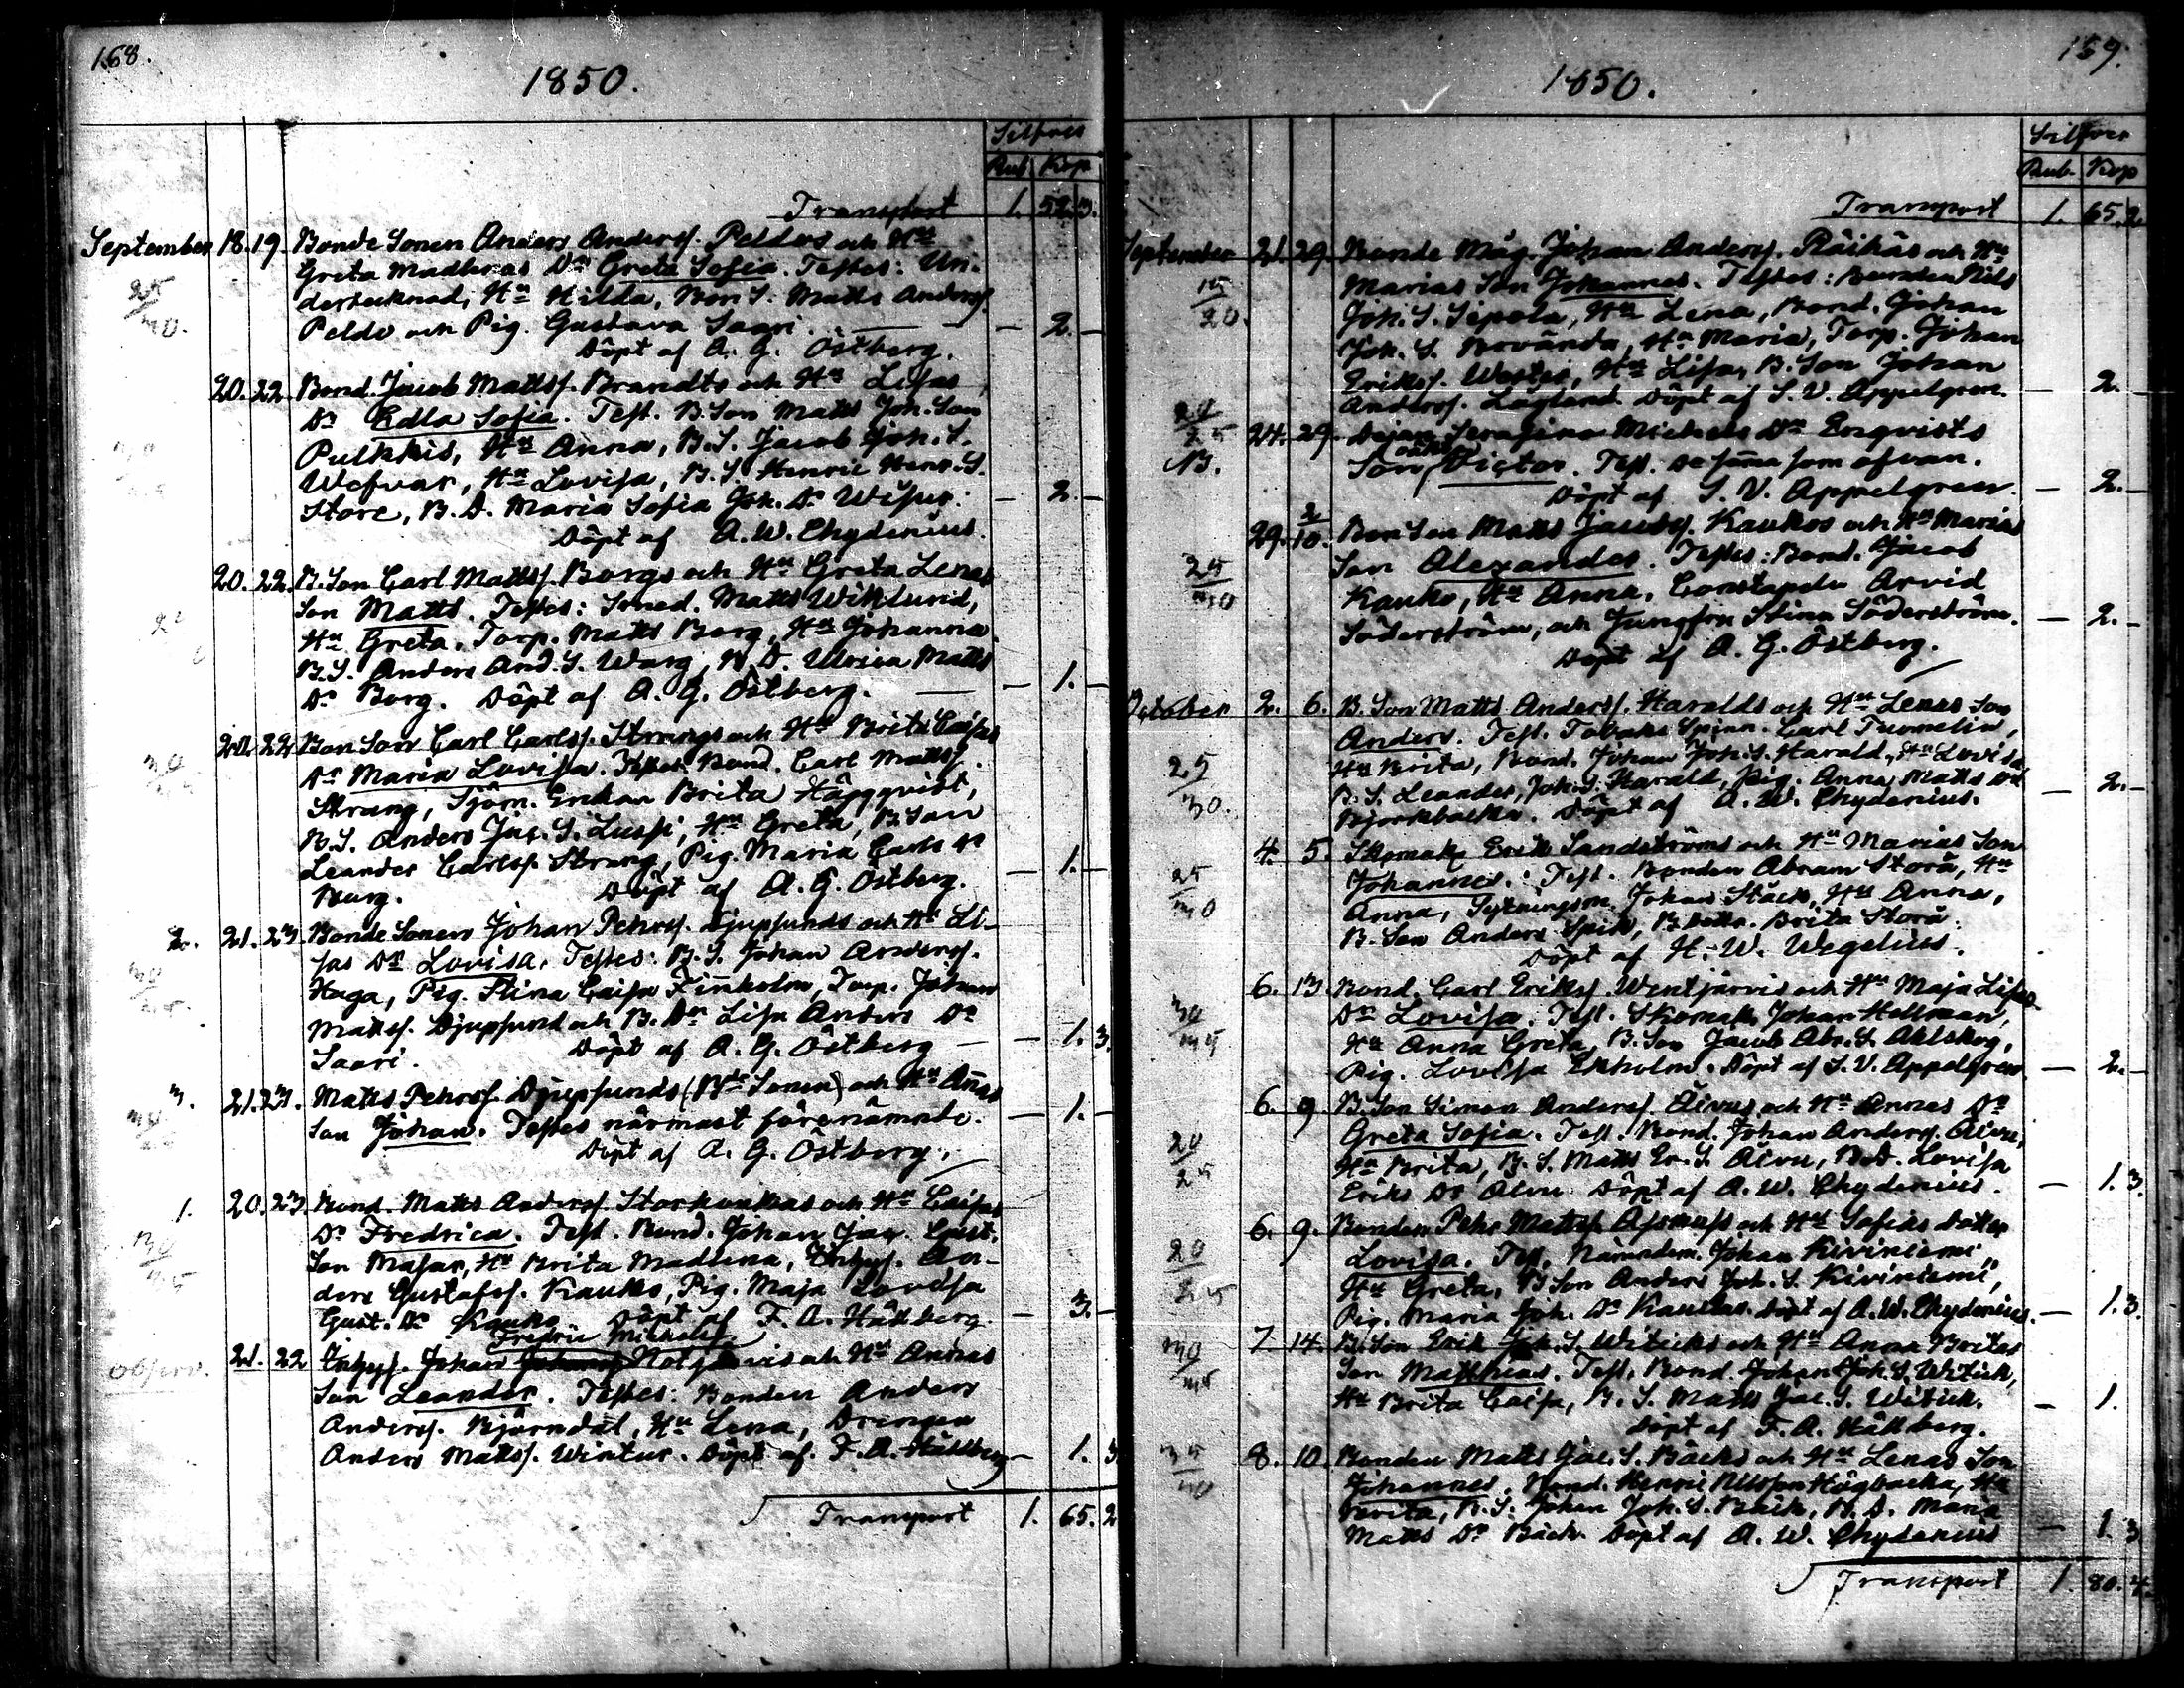 168.
1850.
Silfver
Rub. Kop
Transport 1. 52. 3.
September 18. 19. Bonde Sonen Anders Anderss. Peldos och Hu
Greta Madlenas Dr Greta Sofia. Testes: Un-
dertecknad, Hu Hilda, Bon S. Matts Anderss.
Peldo och Pig. Gustava Saari. — — 2. —
25/30.
Döpt af A. G. Östberg.
20. 22. Bond. Jacob Mattss. Brandts och Hu Lisas
Dr Edla Sofia. Test. B. Son Matts Joh. Son
Pulkkis, Hu Anna, B. S. Jacob Joh. S.
Wefvar, Hu Lovisa, B. S. Henric Henr. S.
Store, B. D. Maria Sofia Joh. Dr — 2. —
Döpt af A. W. Chydenius.
20. 22. B. Son Carl Mattss. Borgs och Hu Greta Lenas
Son Matts. Testes: Smed. Matts Wiklund,
Hu Greta, Torp. Matts Borg, Hu Johanna
B. S. Anders And. S. Warg, B. D. Ulrica Matts
Dr Borg. Döpt af A. G. Östberg. — — 1. —
20. 22. Bon Son Carl Carlss. Strangs och Hu Brita Caisas
Dr Maria Lovisa. Testes Bond. Carl Mattss.
Strang, Sjöm. Enkan Brita Häggqvist,
B. S. Anders Jac. S. Lussi, Hu Greta, B. Son
Leander Carlss. Strang, Pig. Maria Carls Dr — 1. —
Burg. Döpt af A. G. Östberg.
2. 21. 23. Bonde Sonen Johan Pehrss. Djupsunds och Hu Li-
sas Dr Lovisa. Testes: B. S. Johan Anderss.
Haga, Pig. Stina Caisa Finholm, Torp. Johan
Mattss. Djupsund och B. Dr Lisa Anders Dr
Saari. Döpt af A. G. Östberg — — 1. 3.
3. 21. 23. Matts Pehrss. Djupsunds (Bde Sonen) och Hu Annas
Son Johan. Testes närmast förenämnde. — 1. —
Döpt af A. G. Östberg.
1. 20. 23. Bond. Matts Anderss. Storkaukas och Hu Caisas
Dr Fredrica. Test. Bond. Johan Jac. Gust.
Son Masar, Hu Brita Madlena, Inhys. An-
ders Gustafss. Kauko, Pig. Maja Lovisa
Gust. Dr Kauko Döpt af F. A. Hällberg. — 3. —
Fredric Mickelss.
Observ. 21. 22 Inhys. Johan och Hu Annas
Son Leander. Testes: Bonden Anders
Anderss. Björndal, Hu Lena, Drengen
Anders Mattss. Wintur. Döpt af F. A. Hällberg — 1. 3
Transport 1. 65. 2
159.
1850.
Silfver
Rub. Kop
Transport 1. 65. 2.
September 21. 29. Bonde Måg. Johan Anderss. Räihäs och Hu
Marias Son Johannes. Testes: Bonden Nils
15/20.
Joh. S. Sipola, Hu Lena, Bond. Johan
Joh. S. Hu Maria, Torp. Johan
Erikss. Hu Lisa, B. Son Johan
Anderss. Lågland. Döpt af S. V. Appelgren. — 2. —
24. 29. Dejan Serafina Mickels Dr Enqvists
oäkta
Son Victor. Test. De samma som ofvan.
Döpt af S. V. Appelgren. — 2. —
29. 2/10. Bon Son Matts Jacobss. Kaukos och Hu Marias
Son Alexander. Testes: Bond. Jacob
Kauko, Hu Anna, Constapeln Arvid
Söderström, och Jungfru Stina Söderström. — 2. —
Döpt af A. G. Östberg.
October 2. 6. B. Son Matts Anderss. Haralds och Hu Lenas Son
Anders. Test. Tobaks Spinn. Carl Tummelin,
25/30.
Hu Brita, Bond. Johan Joh. S. Harald, Hu Lovisa,
B. S. Leander Joh. S. Harald, Pig. Anna Matts Dr
Björkbacka. Döpt af A. W. Chydenius. — 2. —
4. 5. Skomak. Erik Sandströms och Hu Marias Son
Johannes. Test. Bonden Abram Storå, Hu
Anna, Sytningsm. Johan Stäck, Hu Anna,
B. Son Anders Spik, B. Dottr. Brita Storå.
Döpt af H. W. Wegelius.
6. 13. Bond. Carl Erikss. Wentjärvis och Hu Maja Lisas
Dr Lovisa. Test. Skomak. Johan Hellman,
Hu Anna Greta, B. Son Jacob Abr. S. Ahlskog,
Pig. Lovisa Ekholm. Döpt af S. V. Appelgren. — 2. —
6. 9 B. Son Simon Anderss. Äivus och Hu Annas Dr
Greta Sofia. Test. Bond. Johan Anderss. Äivu,
20/25
Hu Brita, B. S. Matts Er. S. Äivu, B. D. Lovisa
Eriks Dr Äivu. Döpt af A. W. Chydenius. — 1. 3.
6. 9. Bonden Pehr Mattss. och Hu Sofias dotter
Lovisa. Test. Nämndem. Johan Kiviniemi,
20/25
Hu Greta, B. Son Anders Joh. S. Kiviniemi,
Pig. Maria Joh. Dr Döpt af A. W. Chydenius. — 1. 3.
7. 14. B. Son Erik Joh. S. Witicks och Hu Anna Britas
Son Matthias. Test. Bond. Johan Joh. S. Witick,
Hu Brita Caisa, B. S. Matts Jac. S. Witick. — 1.
Döpt af F. A. Hällberg.
8. 10. Bonden Matts Jac. S. Bäcks och Hu Lenas Son
Johannes. Bond. Henric Nilsson Högbacka, Hu
Brita, B. S. Johan Joh. S. Bäck, B. D. Maria
Matts Dr Bäck. Döpt af A. W. Chydenius — 1. 3
Transport 1. 80. 4.